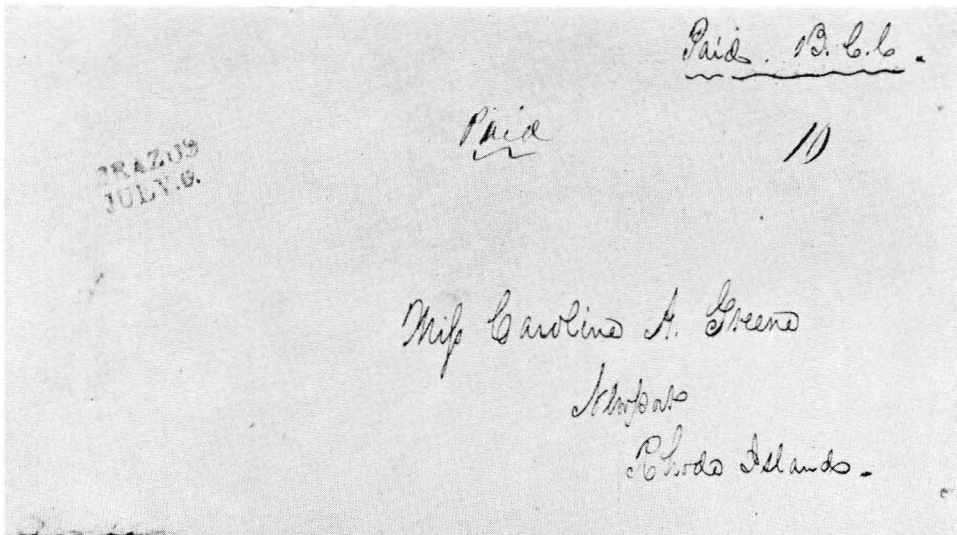 Paid. B.C.C.
Paid 10
BRAZOS
JULY.6.
Miss Caroline A. Greene
Newport
Rhode Island.